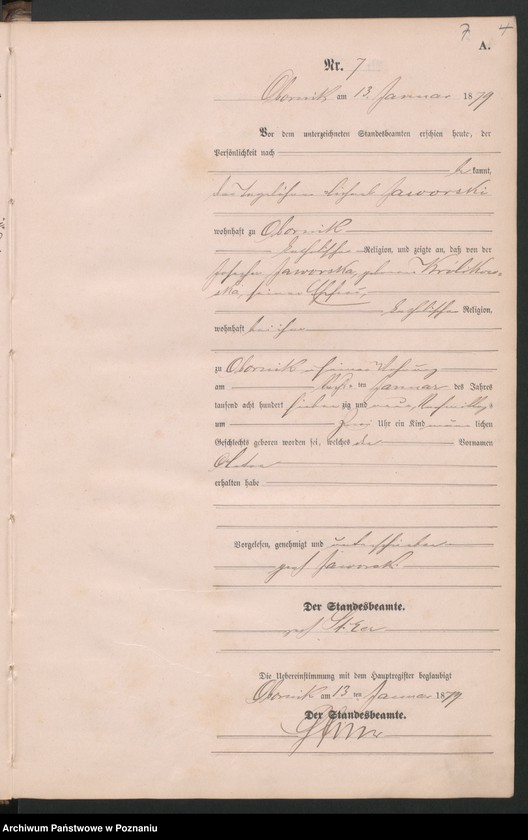 7. 4
A.
Nr. 7
Obornik am 13. Januar 1879
Vor dem unterzeichneten Standesbeamten erschien heute, der
Persönlichkeit nach
be kannt,
der Tagelöhner Jaworski
wohnhaft zu Obornik
katholischer Religion, und zeigte an, daß von der
Jaworska, geborene Królikow-
ska, seiner Ehefrau,
katholischer Religion,
wohnhaft bei ihm
zu Obornik in seiner Wohnung
am ten Januar des Jahres
tausend acht hundert sieben zig und neun, Nachmittags
um zwei Uhr ein Kind männ lichen
Geschlechts geboren worden sei, welches den Vornamen
erhalten habe
Vorgelesen, genehmigt und unterschrieben
gez. Jaworski
Der Standesbeamte.
gez.
Die Uebereinstimmung mit dem Hauptregister beglaubigt
Obornik am 13 ten Januar 1879
Der Standesbeamte.
Archiwum Państwowe w Poznaniu